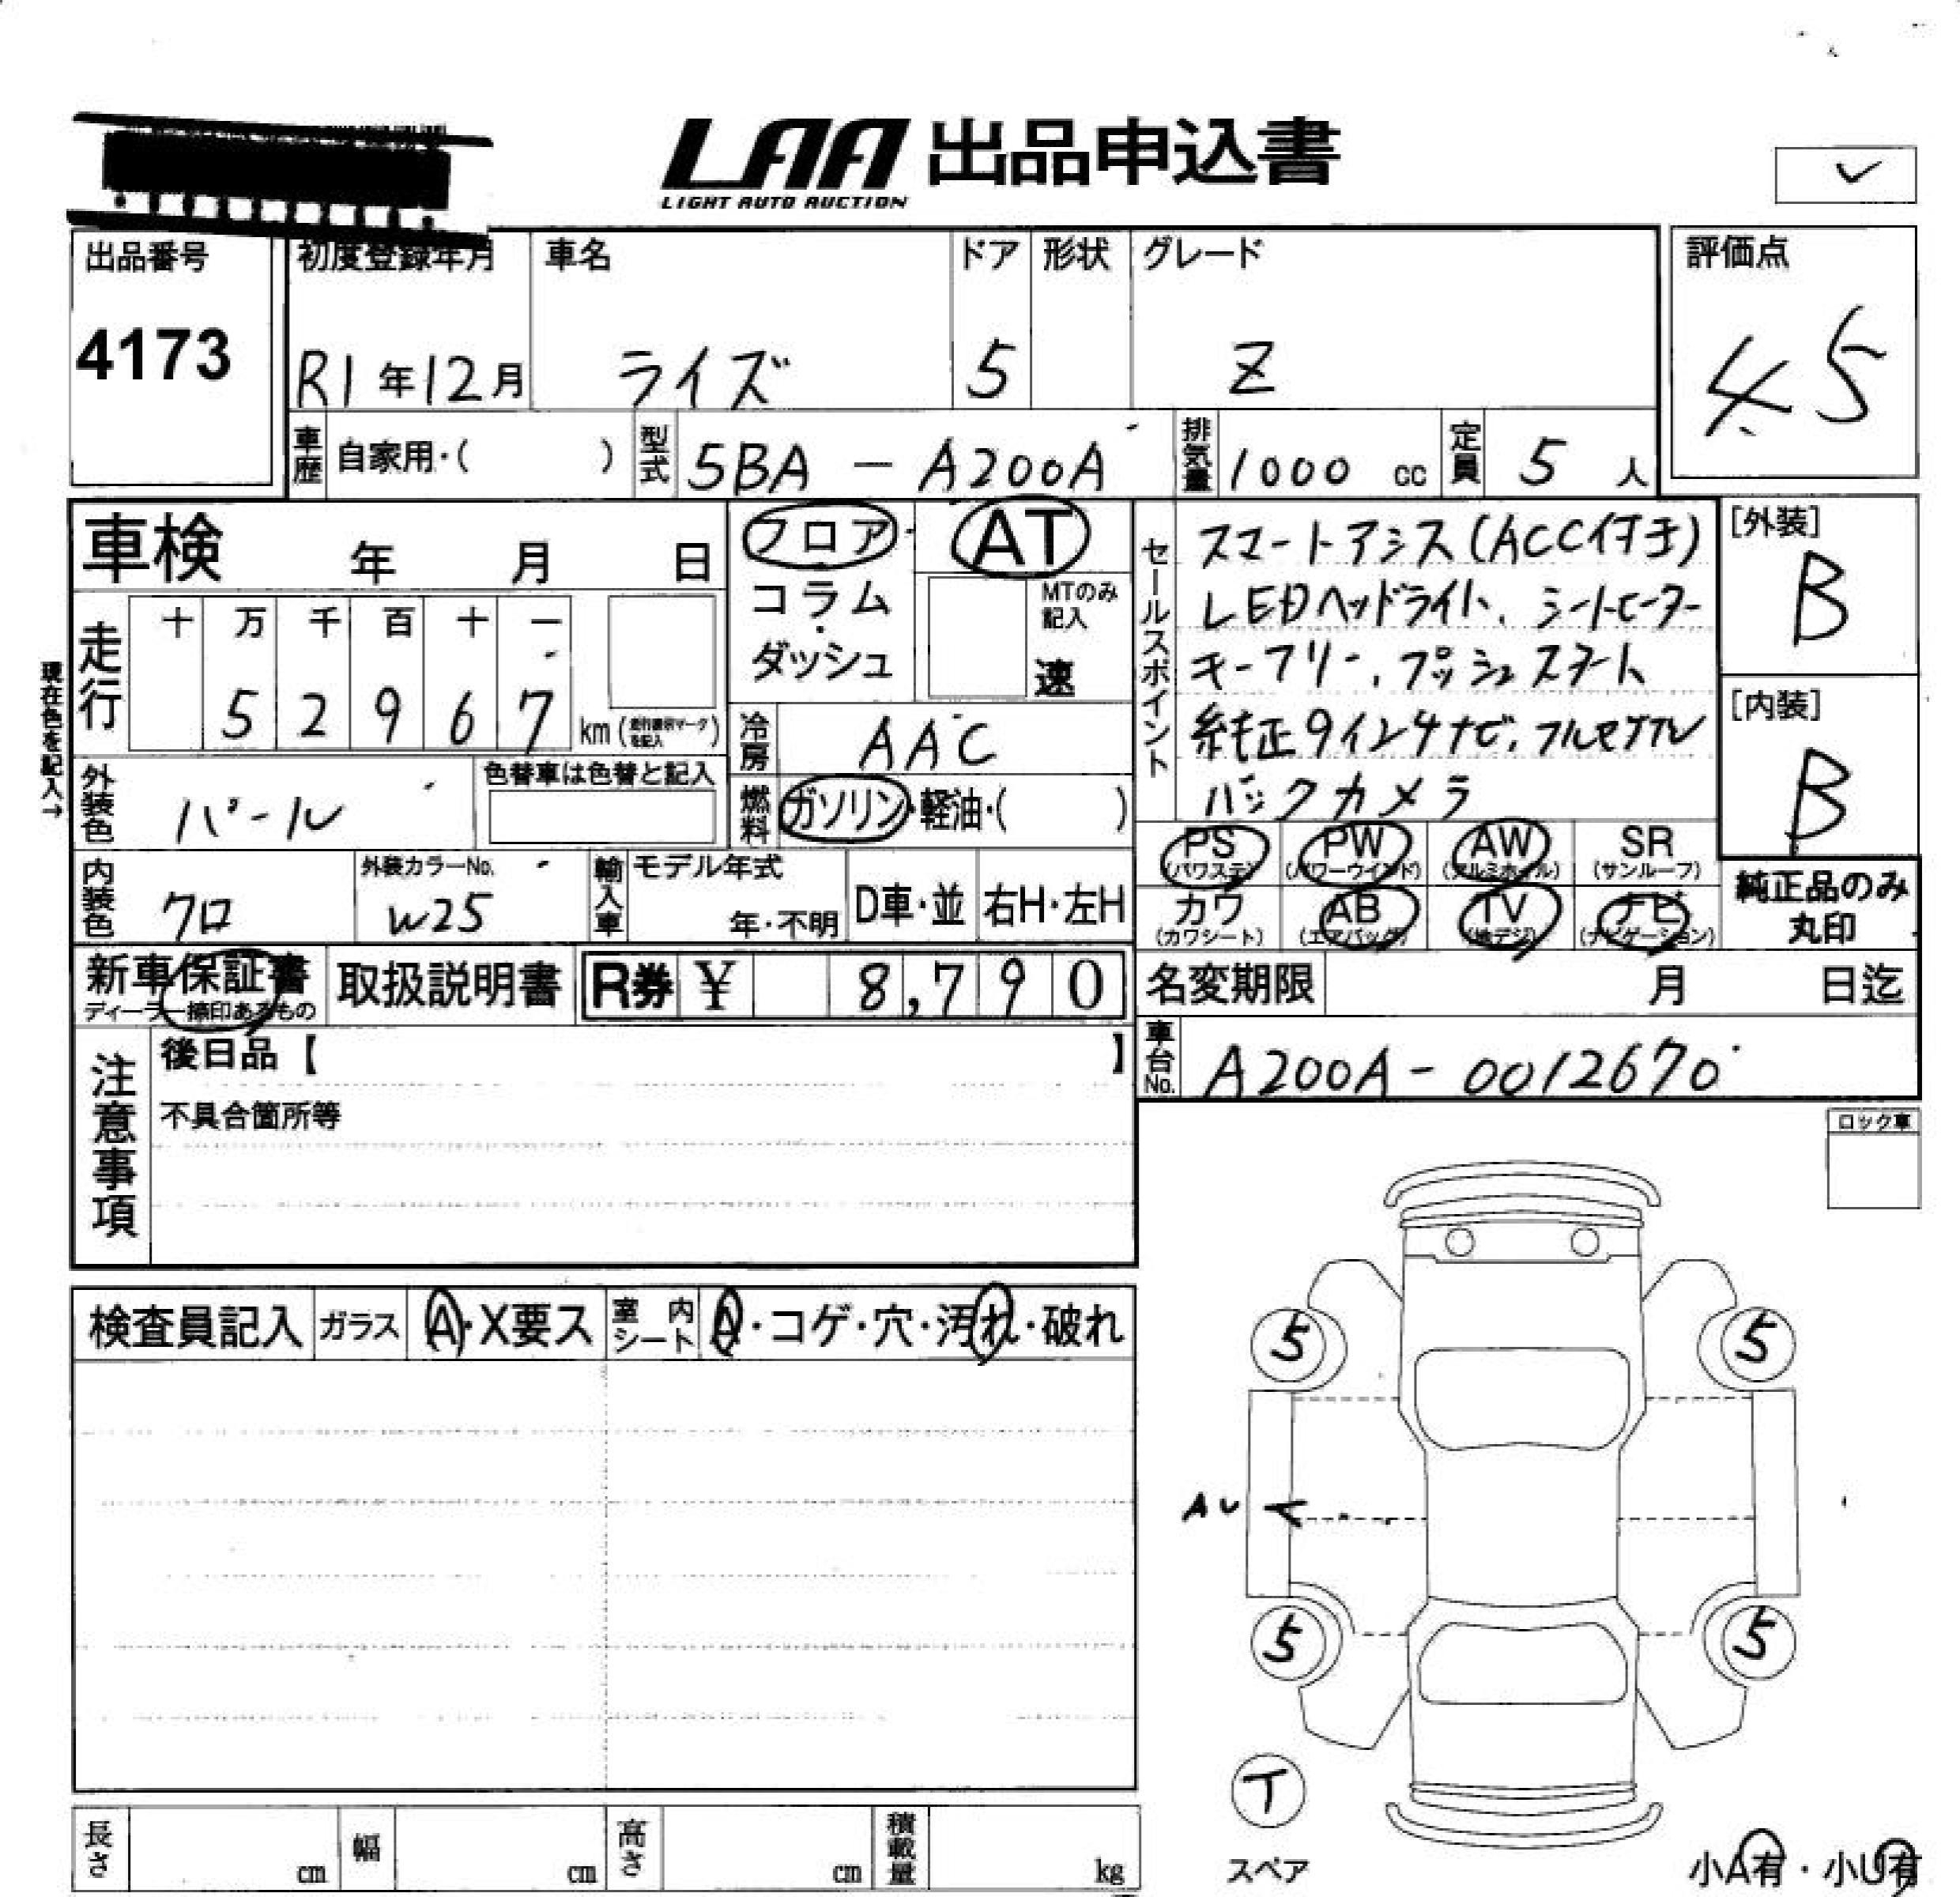 LAA 出品申込書
LIGHT AUTO AUCTION
出品番号 初度登録年月 車名 ドア 形状 グレード 評価点
4173 R1年12月 ライズ 5 Z 4.5
車歴 自家用・( ) 型式 5BA - A200A 排気量 1000 cc 定員 5 人
車検 年 月 日 フロア・ AT
コラム・ダッシュ MTのみ記入 速
セールスポイント
スマートアシス(ACC付き)
LEDヘッドライト、シートヒーター
キーフリー、プッシュスタート
純正9インチナビ、フルセグTV
バックカメラ
[外装]
B
[内装]
B
現在色を記入→
走行 十 万 千 百 十 一
5 2 9 6 7 km
冷房 AAC
外装色 パール 色替車は色替と記入
燃料 ガソリン・軽油・( )
PS (パワステ) PW (パワーウインド) AW (アルミホイル) SR (サンルーフ)
カワ (カワシート) AB (エアバッグ) TV (地デジ) ナビ (ナビゲーション)
純正品のみ
丸印
内装色 クロ 外装カラーNo. W25 輸入車 モデル年式 年・不明 D車・並 右H・左H
新車保証書 取扱説明書 R券 ¥ 8,790
ディーラー捺印あるもの
名変期限 月 日迄
車台No. A200A-0012670
注意事項
後日品【 】
不具合箇所等
ロック車
検査員記入 ガラス A・X要ス 室内シート A・コゲ・穴・汚れ・破れ
5 5
AU
5 5
T
スペア
小A有・小U有
長さ cm 幅 cm 高さ cm 積載量 kg